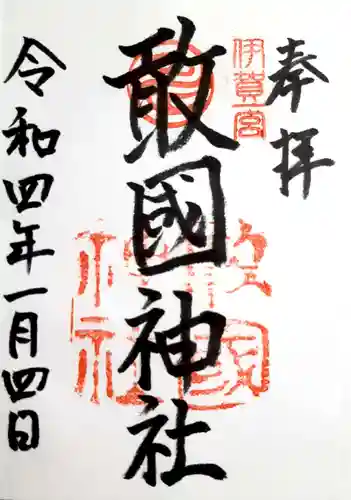 奉拝
伊賀一宮
敢國神社
令和四年一月四日